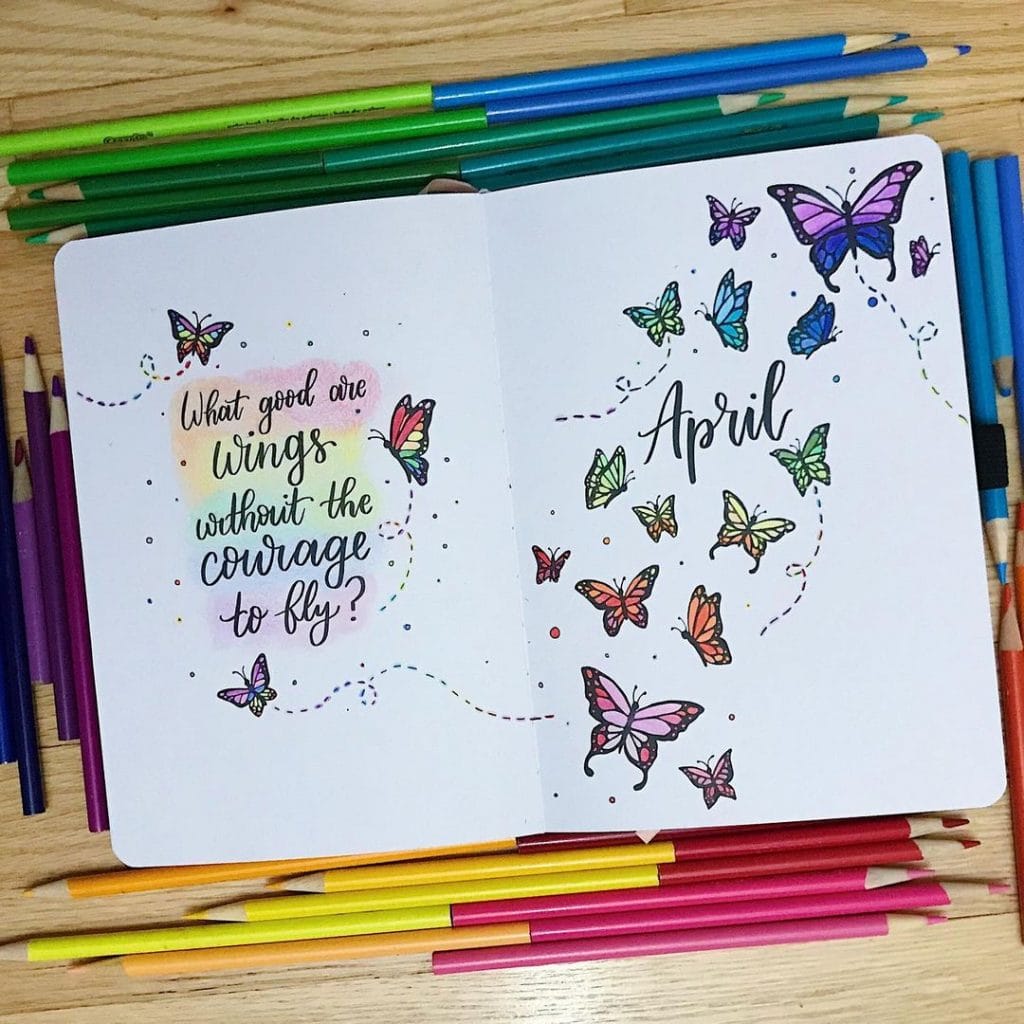 What good are
wings
without the
courage
to fly?
April